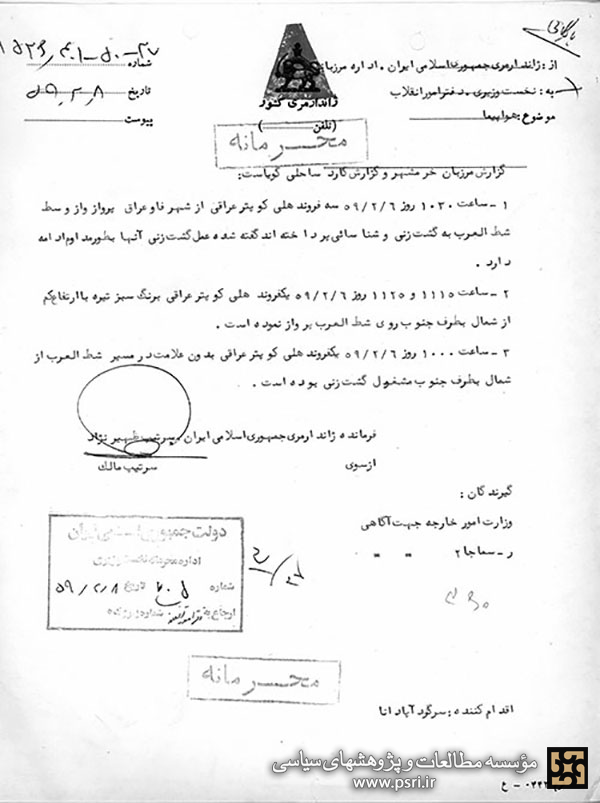 بایگانی
از : ژاندارمری جمهوری اسلامی ایران . اداره مرزبانی
به : نخست وزیری . دفتر امور انقلاب
موضوع : هواپیما
ژاندارمری کشور
(تلفن)
شماره
تاریخ ۵۹٫۲٫۸
پیوست
محرمانه
گزارش مرزبان خرمشهر و گزارش گارد ساحلی گویاست :
۱ - ساعت ۱۰۳۰ روز ۵۹/۲/۶ سه فروند هلی کوپتر عراقی از شهر فاو عراق پرواز واز وسط
شط العرب به گشت زنی و شناسائی پرداخته اند گفته شده عمل گشت زنی آنها بطور مداوم ادامه
دارد .
۲ - ساعت ۱۱۱۵ و ۱۱۲۵ روز ۵۹/۲/۶ یکفروند هلی کوپتر عراقی برنگ سبز تیره با ارتفاع کم
از شمال بطرف جنوب روی شط العرب پرواز نموده است .
۳ - ساعت ۱۰۰۰ روز ۵۹/۲/۶ یکفروند هلی کوپتر عراقی بدون علامت در مسیر شط العرب از
شمال بطرف جنوب مشغول گشت زنی بوده است .
فرمانده ژاندارمری جمهوری اسلامی ایران . سرتیپ ظهیر نژاد
ازسوی سرتیپ مالک
گیرندگان :
وزارت امور خارجه جهت آگاهی
ر - سماجا ۲ " "
دولت جمهوری اسلامی ایران
اداره محرمانه نخست وزیری
شماره تاریخ ۵۹/۲/۸
ارجاع به شماره پرونده
محرمانه
اقدام کننده : سرگرد آباد انا
مؤسسه مطالعات و پژوهشهای سیاسی
www.psri.ir